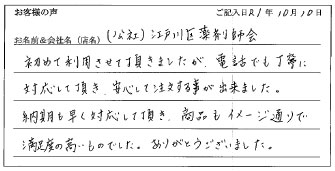 お客様の声 ご記入日21年10月10日
お名前&会社名(店名) (公社)江戸川区薬剤師会
初めて利用させて頂きましたが、電話でも丁寧に
対応して頂き、安心して注文する事が出来ました。
納期も早く対応して頂き、商品もイメージ通りで
満足度の高いものでした。ありがとうございました。